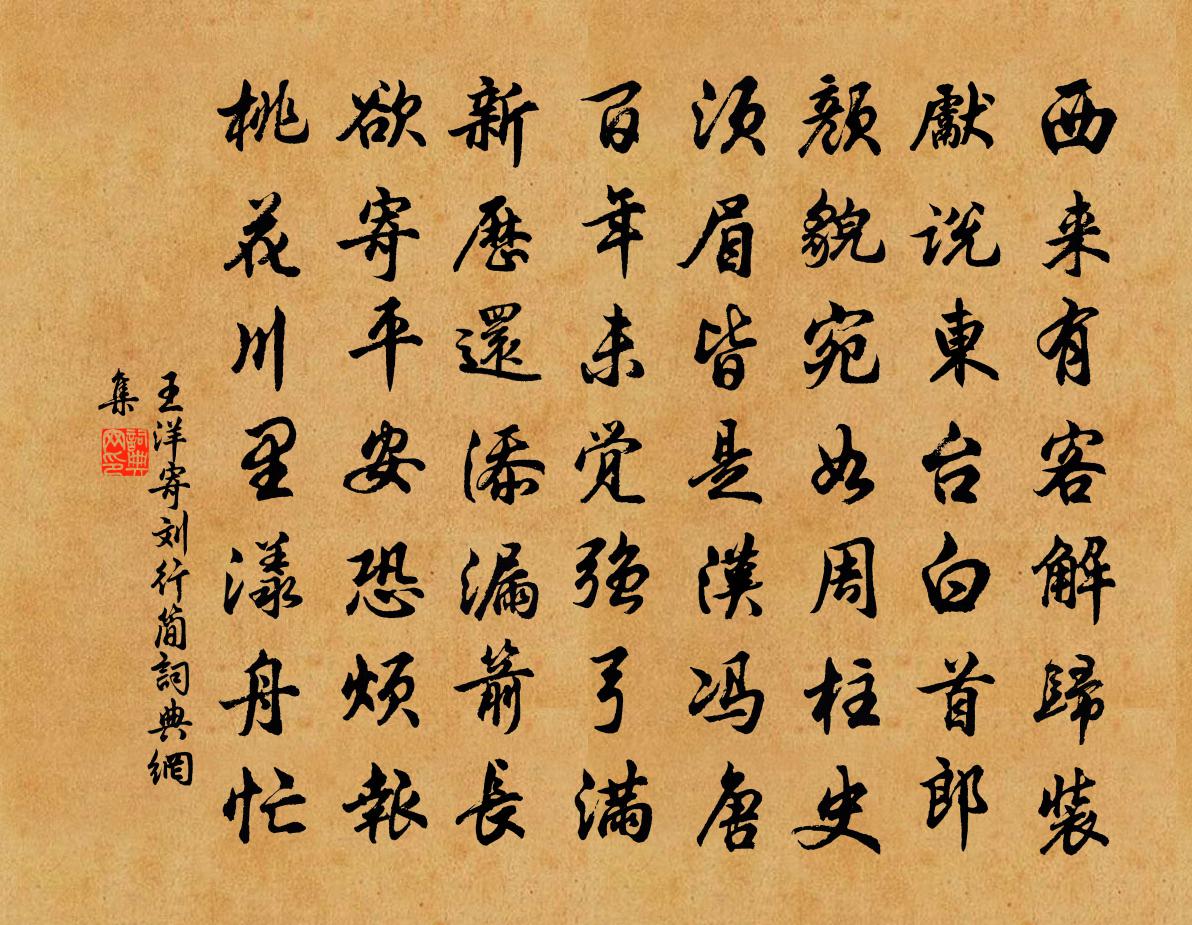 西来有客解歸裝
獻説東台白首郎
顏貌宛如周柱史
須眉皆是漢冯唐
百年未覚強弓滿
新歷還添漏箭長
欲寄平安恐煩報
桃花川里漾舟忙
王洋寄刘行简詞典網
集
詞典
网印